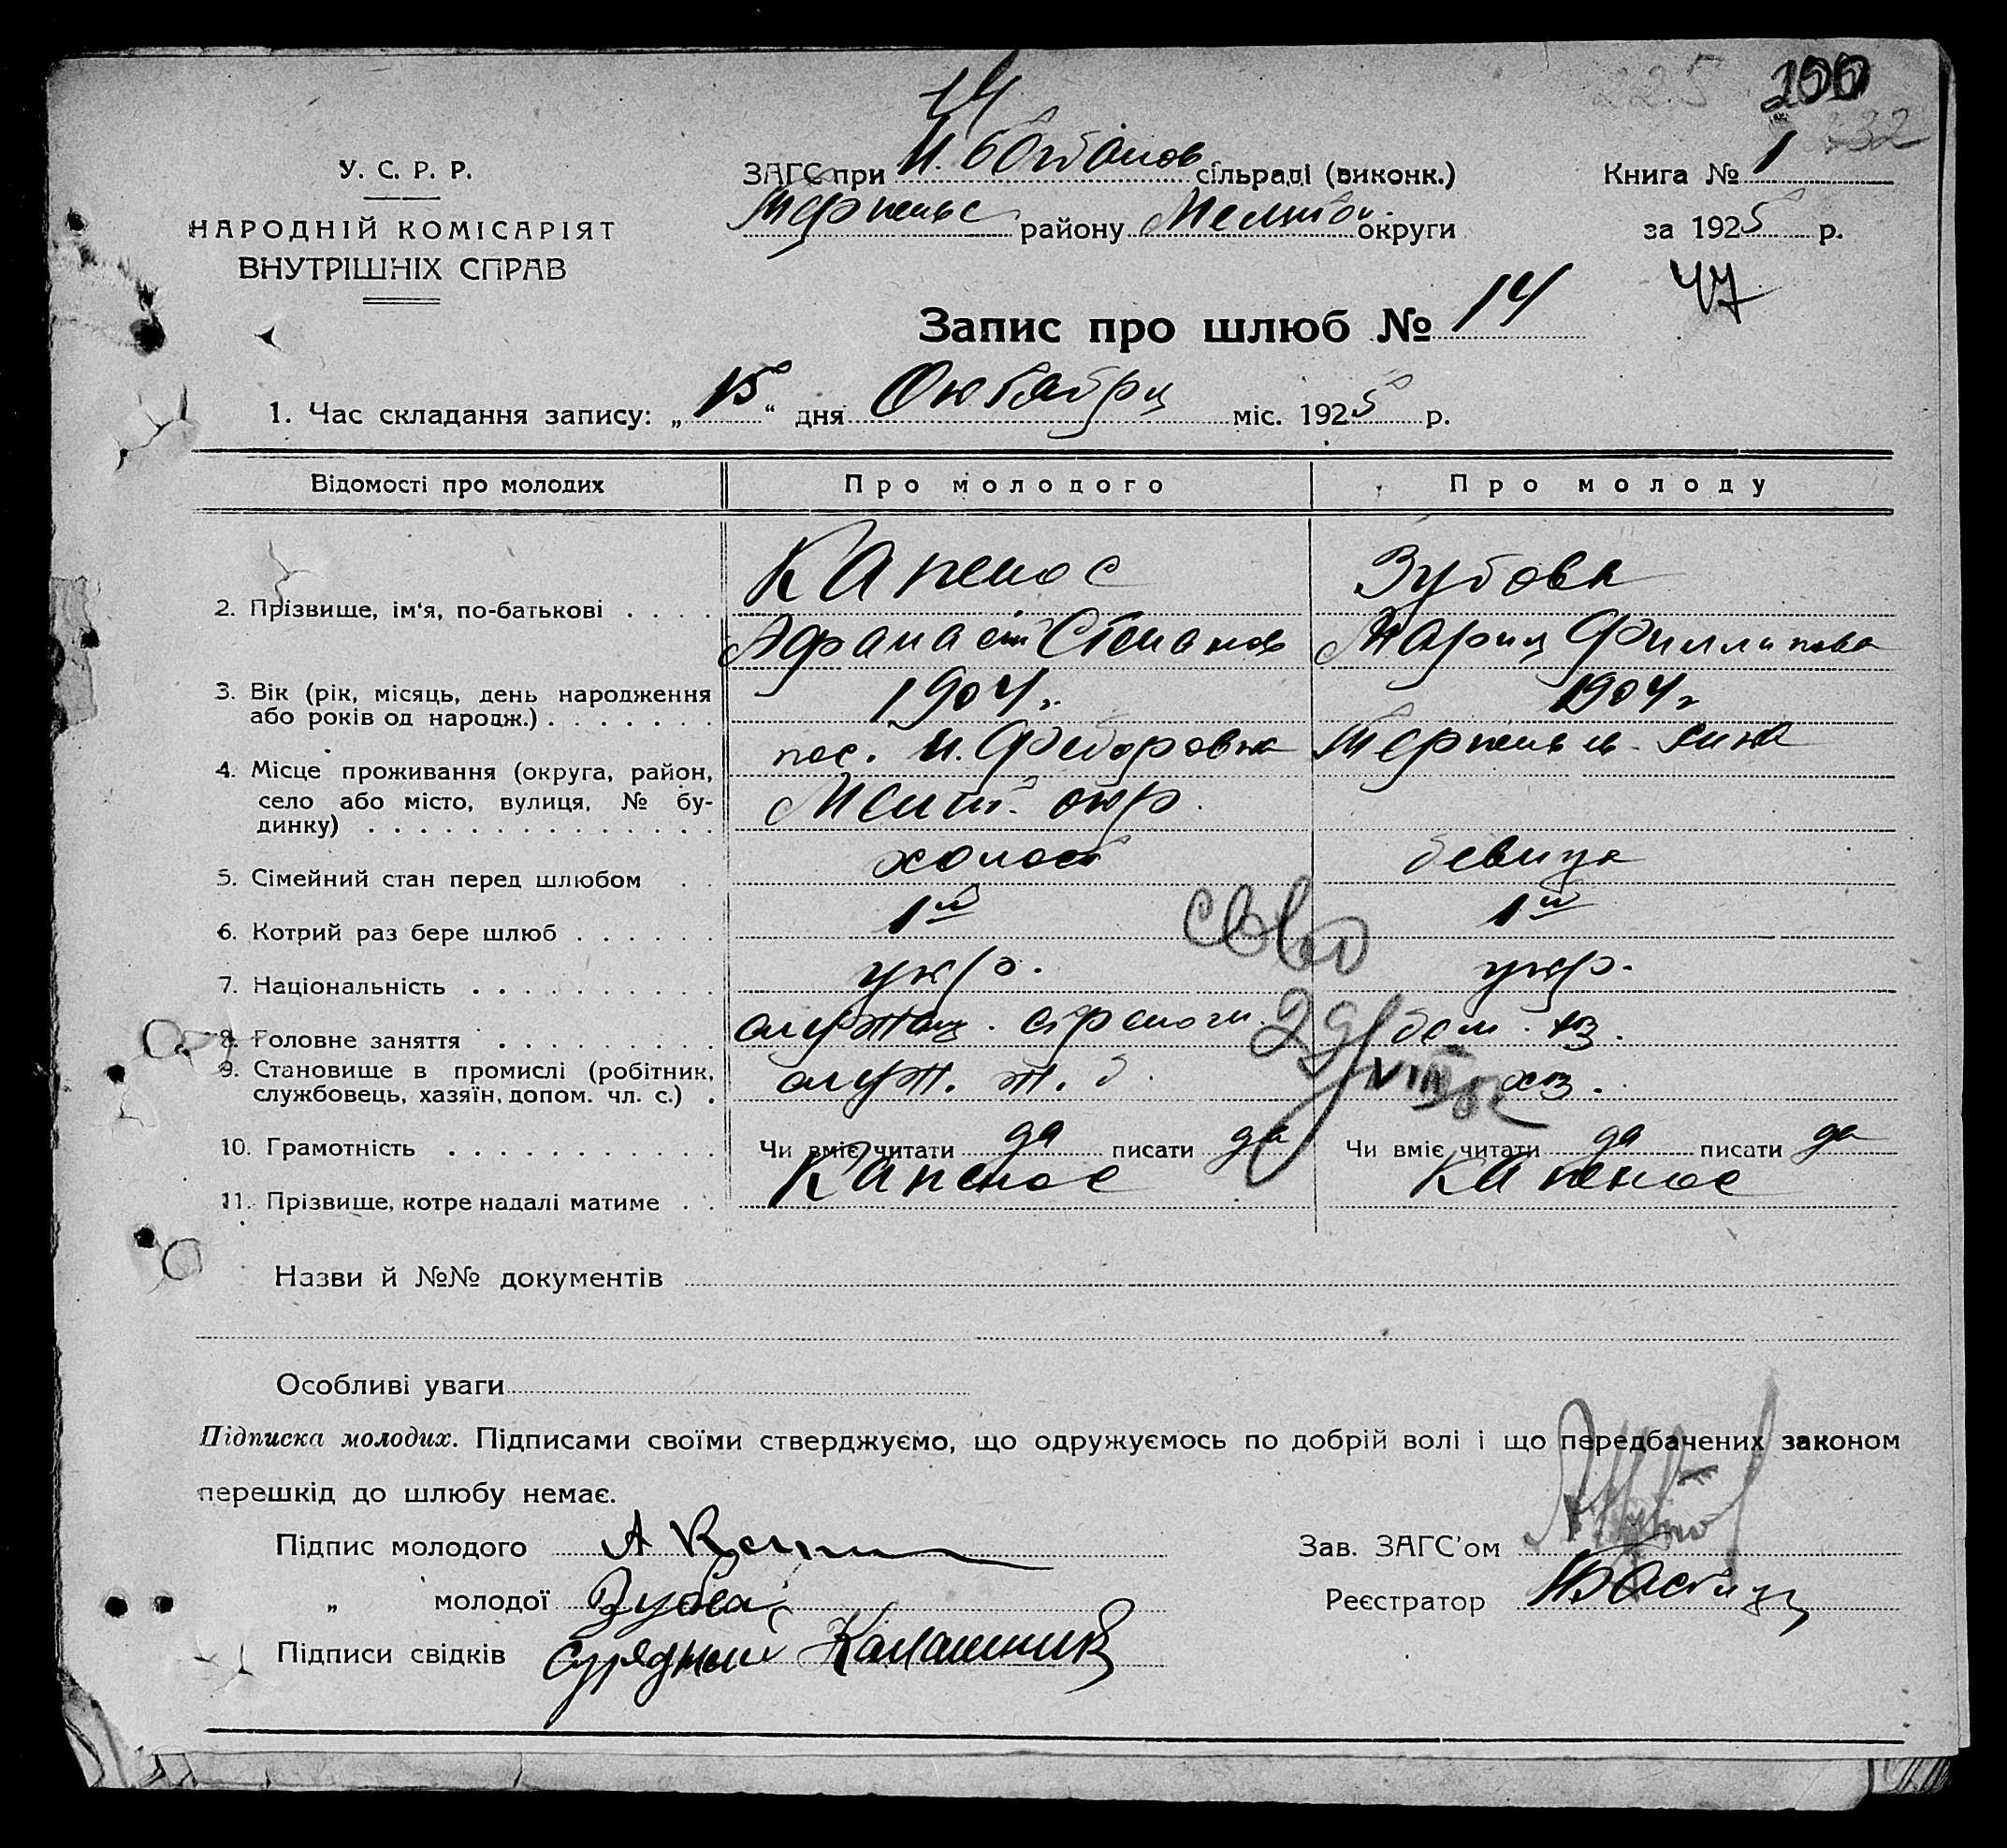 14
225 200
132
У. С. Р. Р.
ЗАГС при Н. Богданов сільраді (виконк.)
Книга № 1
НАРОДНІЙ КОМІСАРІЯТ
Терпеньс району Мелитоп. округи
за 1925 р.
ВНУТРІШНІХ СПРАВ
47
Запис про шлюб № 14
1. Час складання запису: „15“ дня Октября міс. 1925 р.
Відомості про молодих Про молодого Про молоду
Капенос Зубова
2. Прізвище, ім'я, по-батькові . . . .
Афанасий Степанов Мария Филлипова
3. Вік (рік, місяць, день народження
або років од народж.) . . . . . . . 1904 г. 1904 г
пос. Н. Федоровка Терпенье
4. Місце проживання (округа, район,
село або місто, вулиця, № бу-
динку) . . . . . . . . . . . . . . Мелит. окр.
5. Сімейний стан перед шлюбом . . холост девица
6. Котрий раз бере шлюб . . . . . . 1й 1й
7. Національність . . . . . . . . . . укр. укр.
8. Головне заняття . . . . . . . . . служащ. дом. хоз.
9. Становище в промислі (робітник,
службовець, хазяїн, допом. чл. с.) . служ. хоз.
29/VIII
10. Грамотність . . . . . . . . . . . Чи вміє читати да писати да Чи вміє читати да писати да
11. Прізвище, котре надалі матиме . . Капенос Капенос
Назви й №№ документів
Особливі уваги
Підписка молодих. Підписами своїми стверджуємо, що одружуємось по добрій волі і що передбачених законом
перешкід до шлюбу немає.
Підпис молодого А Кап
Зав. ЗАГС'ом
„ молодої Зубова
Реєстратор
Підписи свідків Калашник